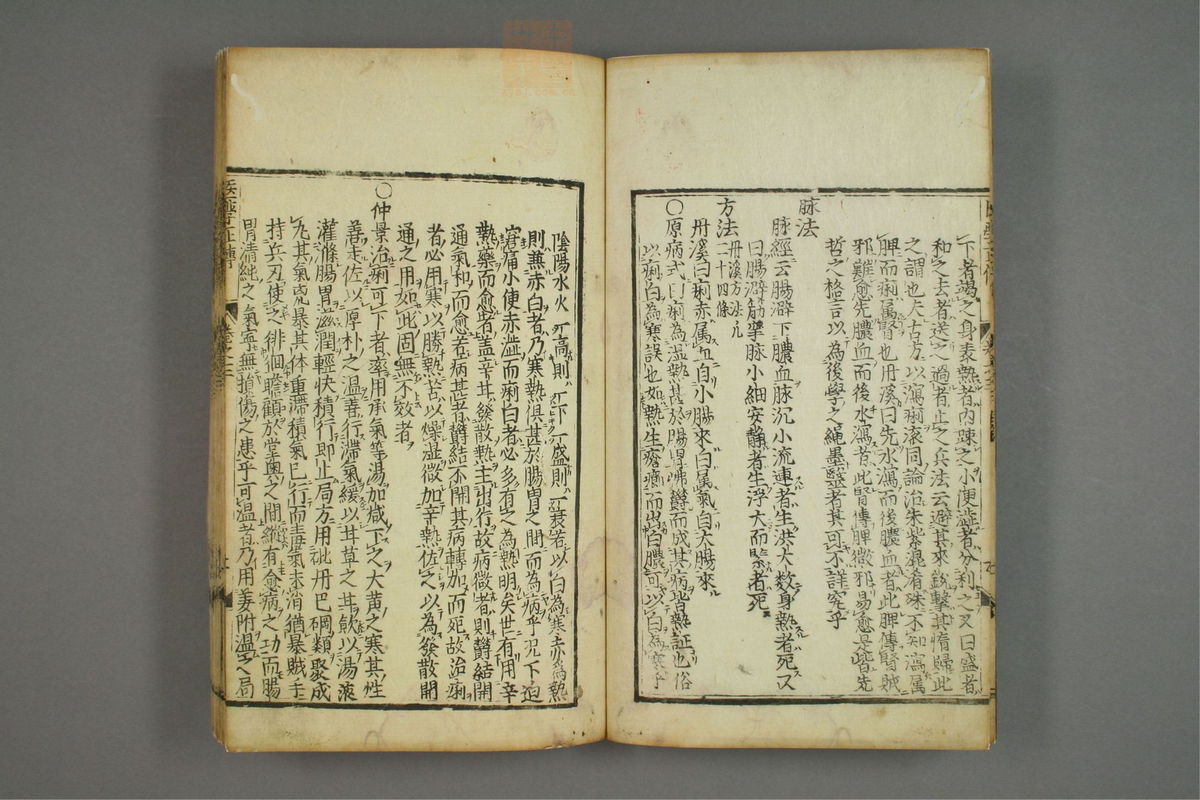 下者竭之身表熱者內踈之小便澁者分利之又曰盛者
和之去者送之過者止之兵法云避其來鋭擊其惰歸此
之謂也大古方以瀉痢滚同論治朱紫混有殊不知瀉属
脾而痢属腎也丹溪曰先水瀉而後膿血者此脾傳腎賊
邪難愈先膿血而後水瀉者此腎傳脾微邪易愈是皆先
哲之格言以為後學之繩墨醫者其可不詳究乎
脉法
脉經云腸澼下膿血脉沉小流連者生洪大数身熱者死又
曰腸澼筋攣脉小細安静者生浮大而緊者死
方法
丹溪方法凡
二十四條
丹溪曰痢赤属血自小腸來白属氣自大腸來
○原病式曰痢為湿熱甚於腸胃怫欝而成其病皆熱証也俗
以痢白為寒誤也如熱生瘡癤而出白膿可以白為寒乎
陰陽水火一高則一下一盛則一衰若以白為寒赤為熱
則兼赤白者乃寒熱俱甚於腸胃之間而為病乎况下迫
窘痛小便赤澁而痢白者必多有之為熱明矣世有用辛
熱藥而愈者盖辛其發散熱主出行故病微者則欝結開
通氣和而愈若病甚者欝結不開其病轉加而死故治痢
者必用寒以勝熱苦以燥湿微加辛熱佐之以為發散開
通之用如此固無不效者
○仲景治痢可下者率用承氣等湯加减下之大黄之寒其性
善走佐以厚朴之温善行滞氣緩以甘草之甘飲以湯液
灌滌腸胃滋潤輕快積行即止局方用砒丹巴硇類聚成
丸其氣兇暴其体重滞積氣已行而毒氣未消猶暴賊手
持兵刃使之徘徊瞻顧於堂奥之間縱有愈病之功而腸
胃清純之氣寧無損傷之患乎可温者乃用姜附温之局